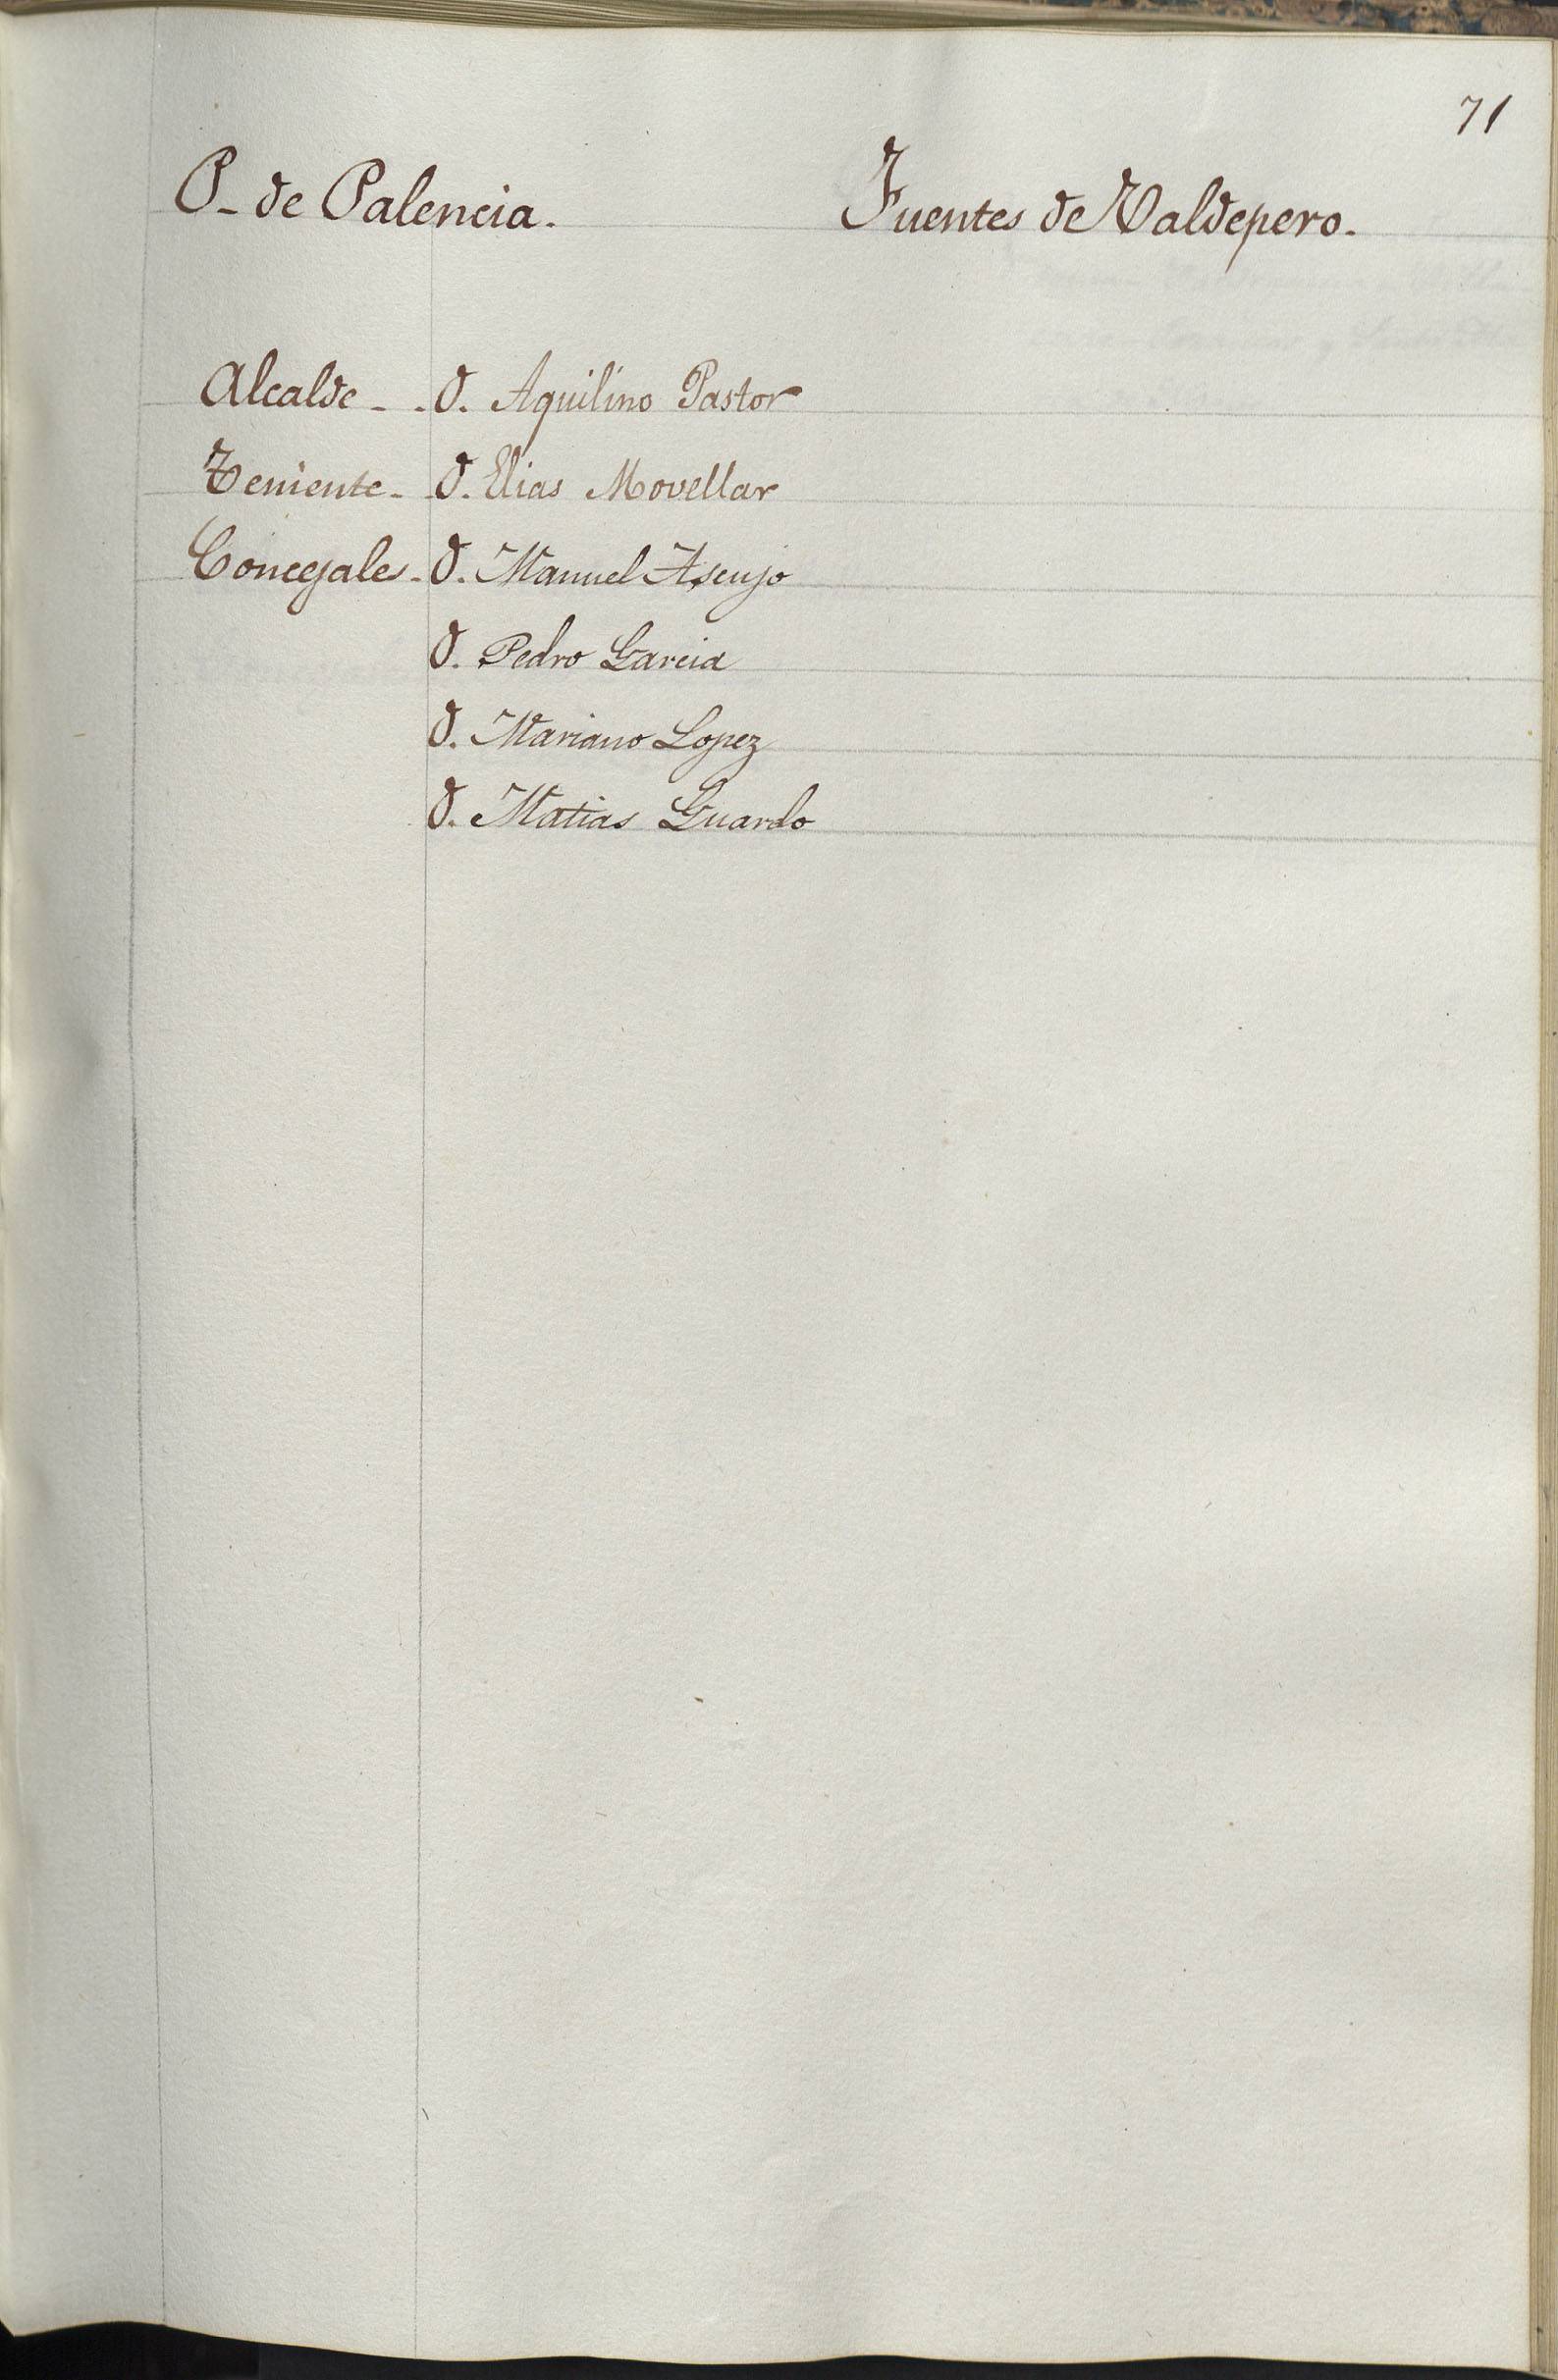 71
P. de Palencia. Fuentes de Valdepero.
Alcalde - - D. Aquilino Pastor
Teniente - - D. Elias Movellar
Concejales - D. Manuel Asenjo
D. Pedro Garcia
D. Mariano Lopez
D. Matias Guardo